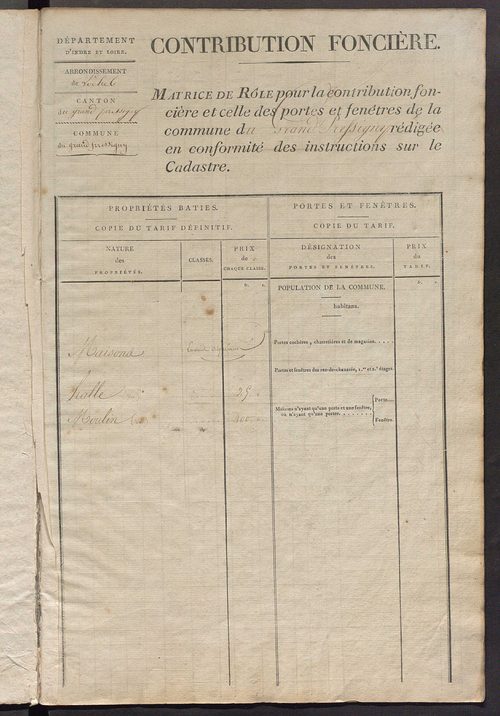 DÉPARTEMENT
D'INDRE ET LOIRE.
ARRONDISSEMENT
de Loches
CANTON
du grand pressigny
COMMUNE
du grand pressigny
CONTRIBUTION FONCIÈRE.
MATRICE DE RÔLE pour la contribution fon-
cière et celle des portes et fenêtres de la
commune du Grand Pressigny rédigée
en conformité des instructions sur le
Cadastre.
PROPRIÉTÉS BATIES.
COPIE DU TARIF DÉFINITIF.
NATURE
des
PROPRIÉTÉS.
CLASSES.
PRIX
de
CHAQUE CLASSE.
f. c.
Maisons
halle 25
Moulin 100
PORTES ET FENÊTRES.
COPIE DU TARIF.
DÉSIGNATION
des
PORTES ET FENÊTRES.
PRIX
du
TARIF.
f. c.
POPULATION DE LA COMMUNE.
habitans.
Portes cochères, charretières et de magasins. . . . .
Portes et fenêtres des rez-de-chaussée, 1.er et 2.e étages
Maisons n'ayant qu'une porte et une fenêtre,
ou n'ayant qu'une porte. . . . . . . .
Porte....
Fenêtre.